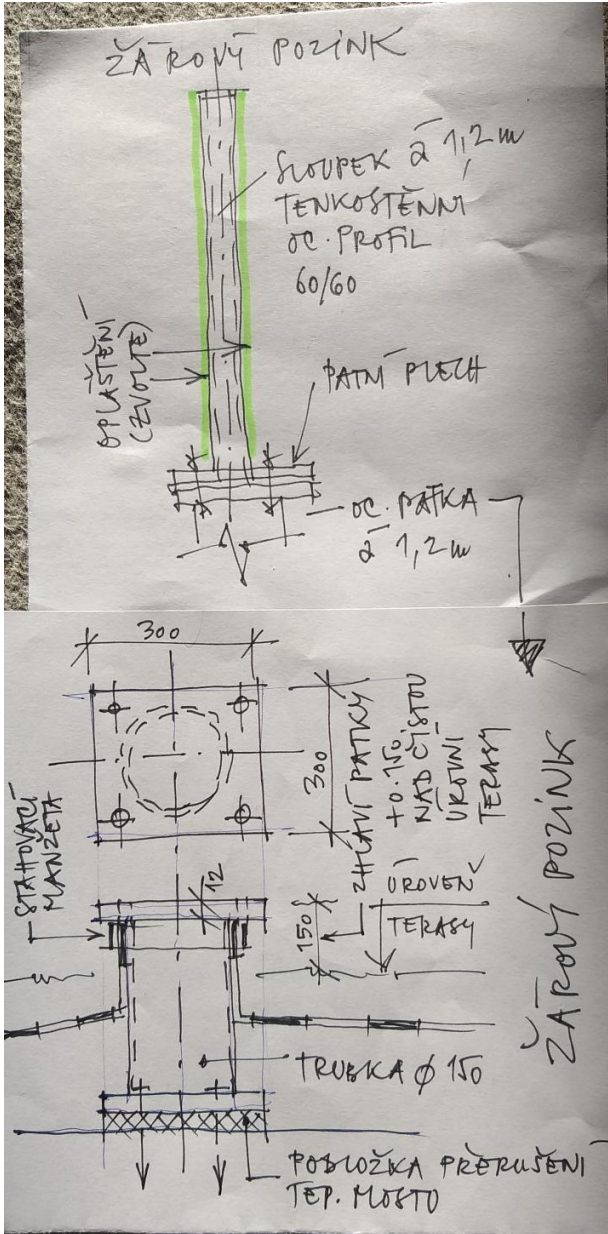 ŽÁROVÝ POZINK
SLOUPEK á 1,2 m
TENKOSTĚNNÝ
OC. PROFIL
60/60
OPLÁŠTĚNÍ
(ZVOLTE)
PATNÍ PLECH
OC. PATKA
á 1,2 m
300
300
ZHLAVÍ PATKY
+0.150
NAD ČISTOU
ÚROVNÍ
TERASY
STAHOVACÍ
MANŽETA
12
150
ÚROVEŇ
TERASY
ŽÁROVÝ POZINK
TRUBKA ϕ 150
PODLOŽKA PŘERUŠENÍ
TEP. MOSTO